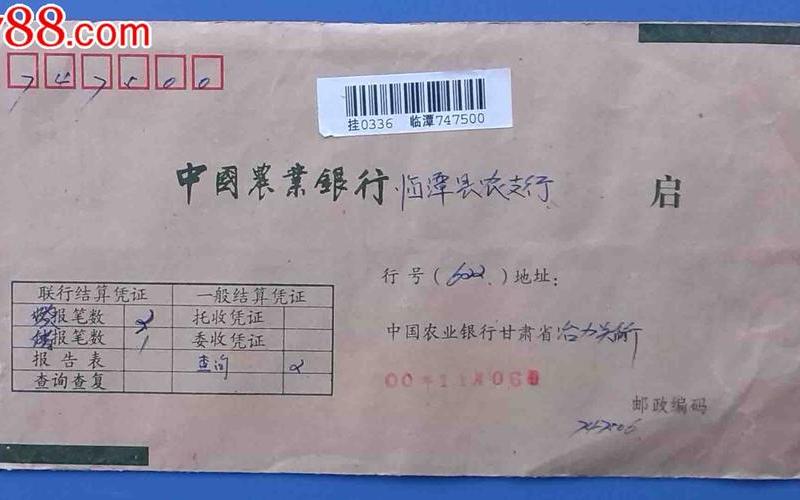 y88.com
747500
挂0336 临潭747500
中國農業銀行 临潭县农支行 启
行号(622)地址:
联行结算凭证 一般结算凭证
报笔数 2 托收凭证
报笔数 1 委收凭证
报告表 查询 2
查询查复
中国农业银行甘肃省冶力关
00年11月06
邮政编码